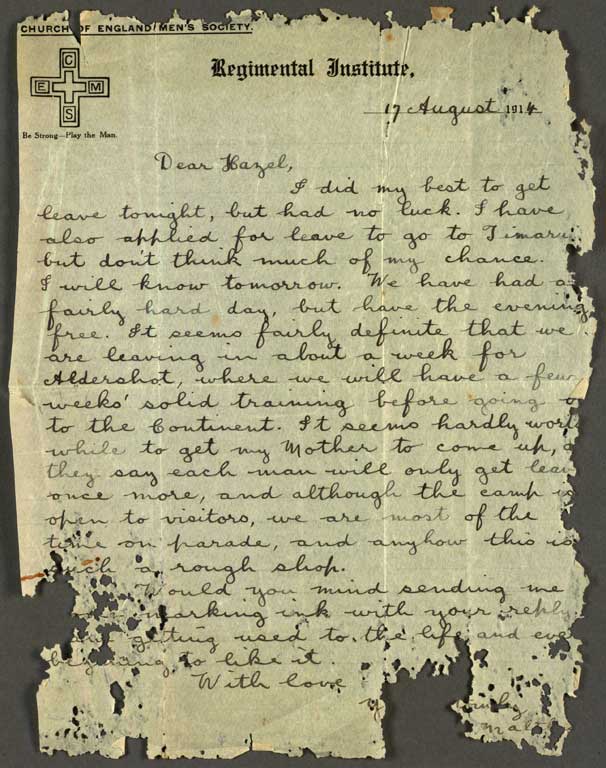 CHURCH OF ENGLAND MEN'S SOCIETY.
C
E M
S
Be Strong—Play the Man.
Regimental Institute.
17 August 1914
Dear Hazel,
I did my best to get
leave tonight, but had no luck. I have
also applied for leave to go to Timaru
but don't think much of my chance.
I will know tomorrow. We have had a
fairly hard day, but have the evening
free. It seems fairly definite that we
are leaving in about a week for
Aldershot, where we will have a few
weeks' solid training before going
to the Continent. It seems hardly worth
while to get my Mother to come up,
they say each man will only get leav
once more, and although the camp is
open to visitors, we are most of the
time on parade, and anyhow this is
such a rough shop.
Would you mind sending me
marking ink with your reply
getting used to the life and eve
beginning to like it.
With love